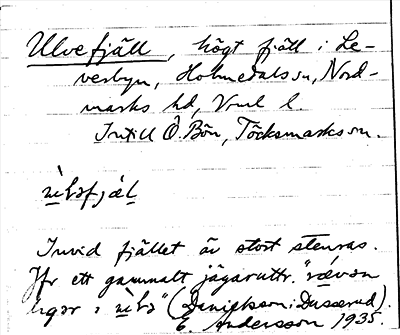 Ulvefjäll, högt fjäll i Le-
verbyn, Holmedals sn, Nord-
marks hd, Vrml l.
Intill Ö. Bön, Töcksmarks sn.
Invid fjället är stort stenras.
Jfr ett gammalt jägaruttr. "räven
ligger i
E. Andersson 1935.